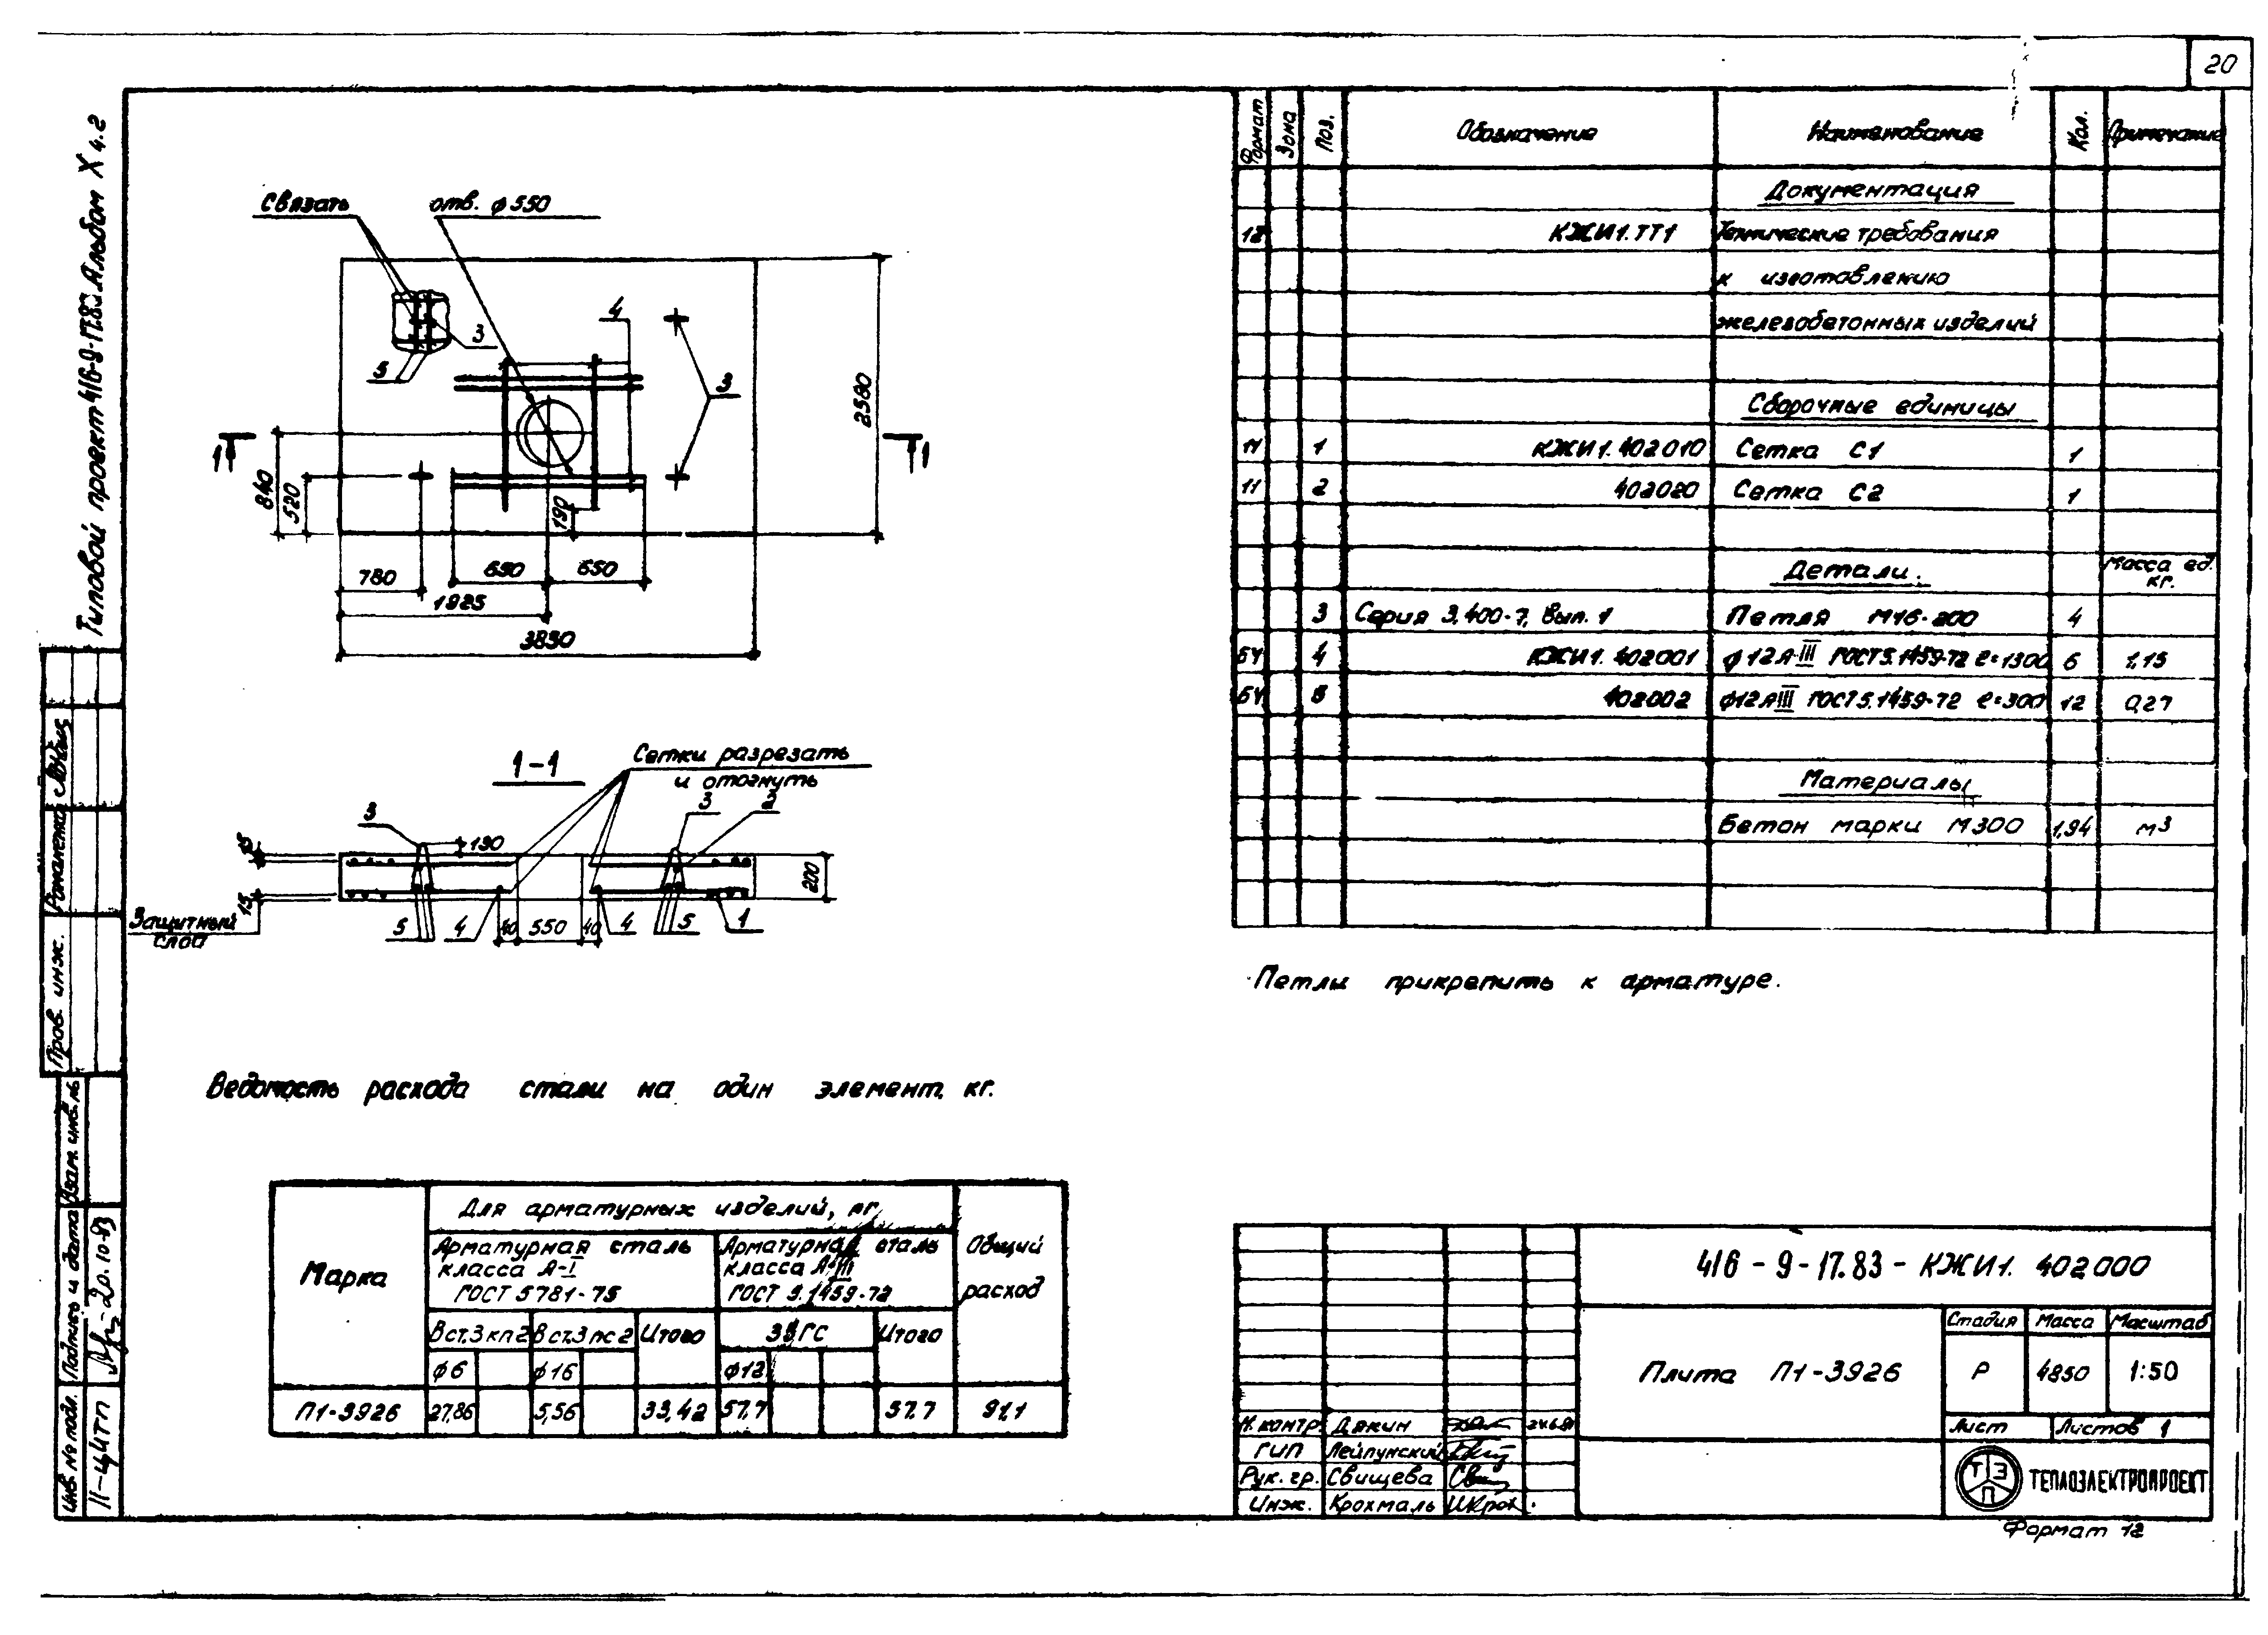 20
Типовой проект 416-9-17.83 Альбом X ч.2
Связать
отв. ф 550
4
3
3
5
1
1
2580
840
520
190
650
650
780
1925
3850
1-1
Сетки разрезать
и отогнуть
3
3
2
130
15
15
200
Защитный
слой
5
4
40
550
40
4
5
1
Формат Зона Поз. Обозначение Наименование Кол. Примечание
Документация
12 КЖИ1.ТТ1 Технические требования
к изготовлению
железобетонных изделий
Сборочные единицы
11 1 КЖИ1.402010 Сетка С1 1
11 2 402020 Сетка С2 1
Детали. Масса ед.
кг.
3 Серия 3.400-7, Вып. 1 Петля М16-200 4
БЧ 4 КЖИ1.402001 ф12А-III ГОСТ5.1459-72 ℓ=1300 6 1,15
БЧ 5 402002 ф12АIII ГОСТ5.1459-72 ℓ=300 12 0,27
Материалы
Бетон марки М300 1,94 м3
Петли прикрепить к арматуре.
Ведомость расхода стали на один элемент, кг.
Марка
Для арматурных изделий, кг
Общий
расход
Арматурная сталь
класса А-I
ГОСТ 5781-75
Арматурная сталь
класса А-III
ГОСТ 5.1459-72
В ст.3 кп 2 В ст.3 пс 2 Итого 35ГС Итого
ф6 ф16 ф12
П1-3926 27,86 5,56 33,42 57,7 57,7 91,1
416-9-17.83-КЖИ1.402000
Плита П1-3926
Стадия Масса Масштаб
Р 4850 1:50
Лист Листов 1
ТЭП
ТЕПЛОЭЛЕКТРОПРОЕКТ
Н.контр. Дякин 24.6.81
ГИП Лейпунский
Рук.гр. Свищева
Инж. Крохмаль
Формат 12
Пров. инж. Романенко
Взам. инв. №
Подпись и дата
Инв. № подл. 11-44ТП